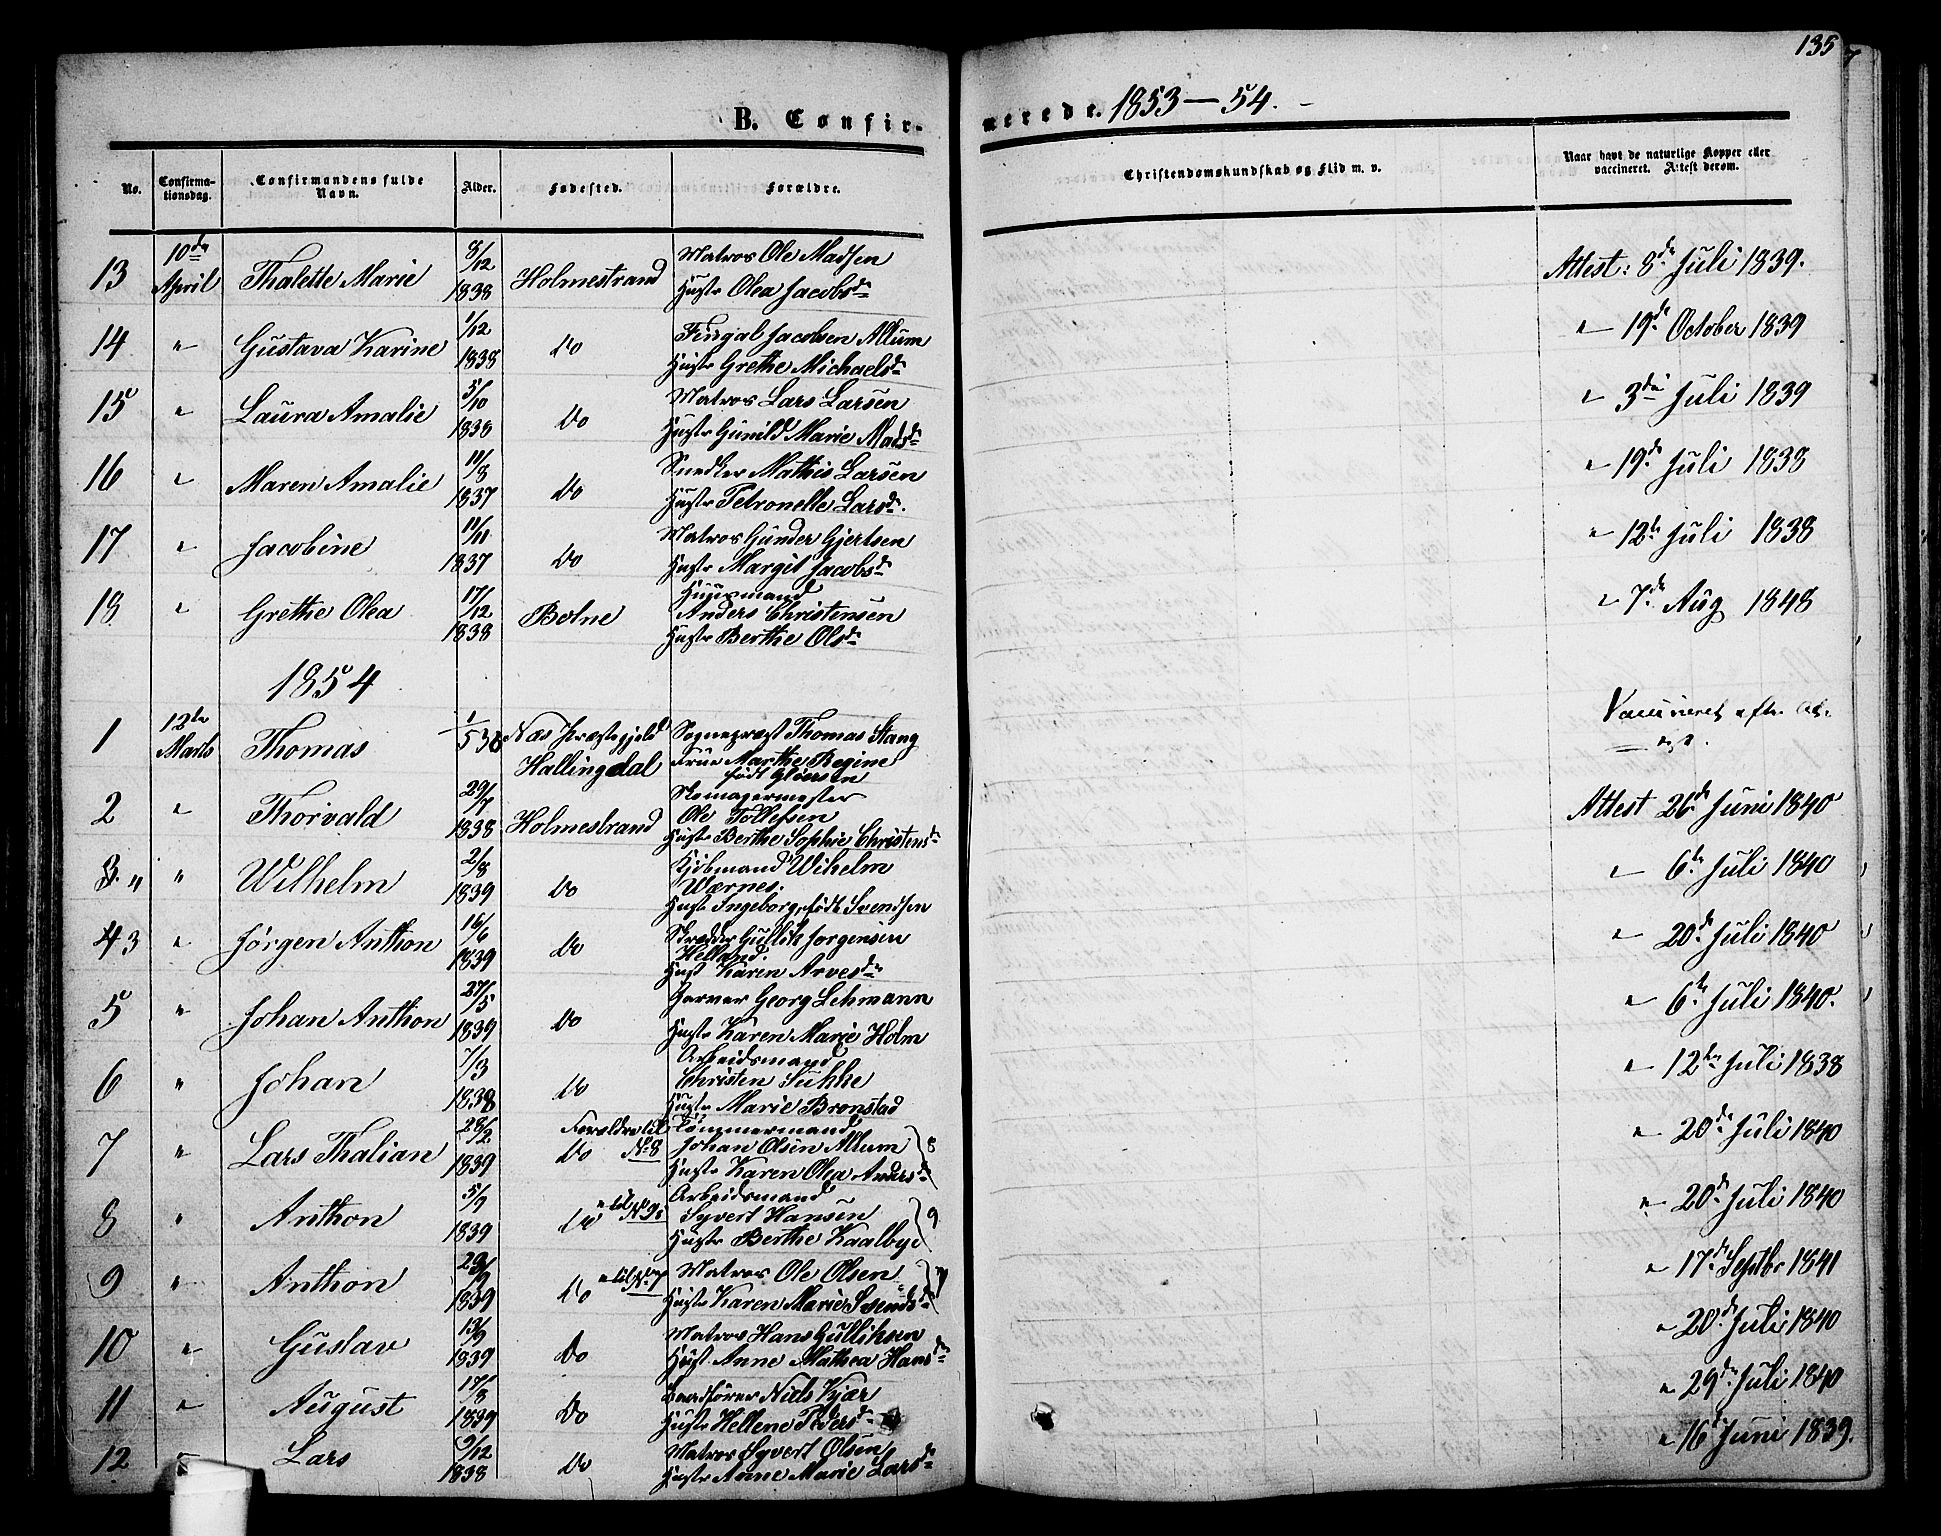 135
B. Confirmerede. 1853—54.
No. Confirmationsdag. Confirmandens fulde Navn. Alder. Fødested. Forældre. Christendomskundskab og Flid m. v. Naar havt de naturlige Kopper eller vaccineret. Attest derom.
13 10de April Thalette Marie 8/12 1838 Holmestrand Matros Ole Madsen Hustr Olea Jacobsdr Attest: 8de Juli 1839.
14 " Gustava Karine 1/12 1838 Do Fingal Jacobsen Allum Hustr Grethe Michaelsdr " 19de October 1839
15 " Laura Amalie 5/10 1838 Do Matros Lars Larsen Hustr Gunild Marie Madsdr " 3die Juli 1839
16 " Maren Amalie 11/8 1837 Do Snedker Mathis Larsen Hustr Petronelle Larsdr. " 19de Juli 1838
17 " Jacobine 11/11 1837 Do Matros Gunder Gjertsen Hustr Margit Jacobsdr " 12te Juli 1838
18 " Grethe Olea 17/12 1838 Botne Huusmand Anders Christensen Hustr Berthe Olsdr " 7de Aug 1848
1854
1 12te Marts Thomas 1/5 38 Næs Præstegjeld Hallingdal Sognepræst Thomas Stang Frue Marthe Regine født Gløersen Vaccineret efter
2 " Thorvald 29/7 1838 Holmestrand Skomagermester Ole Tollefsen Hustr Berthe Sophie Christensdr Attest 26de Juni 1840
3. " " Wilhelm 2/8 1839 Do Kjøbmand Wilhelm Wærnes. Hustr Ingeborg, født Svendsen " 6te Juli 1840
4 3 " Jørgen Anthon 16/6 1839 Do Skrædder Gullik Jørgensen Helland. Hustr Karen Arvesdr " 20de Juli 1840
5 " Johan Anthon 27/5 1839 Do Garver Georg Lehmann Hustr Karen Marie Holm " 6te Juli 1840.
6 " Johan 7/3 1838 Do Arbeidsmand Christen Sukke Hustr Marie Bronstad " 12te Juli 1838
7 " Lars Thalian 28/2 1839 Do Forældre til No 8 Tømmermand Johan Olsen Allum Hustr Karen Olea Andersdr 8 " 20de Juli 1840
8 " Anthon 5/9 1839 Do " til No 9. Arbeidsmand Syvert Hansen Hustr Berthe Kaalbye 9 " 20de Juli 1840
9 " Anthon 23/9 1839 Do " til No 7 Matros Ole Olsen Hustr Karen Marie Svendsdr 7 " 17de Septbr 1841
10 " Gustav 13/9 1839 Do Matros Hans Gulliksen Hustr. Anne Mathea Hansdr " 20de Juli 1840
11 " August 17/8 1839 Do Baadfører Niels Kjær Hustr Hellene Pedersdr " 29de Juli 1840
12 " Lars 9/12 1838 Do Matros Syvert Olsen Hustr Anne Marie Larsdr " 16de Juni 1839.